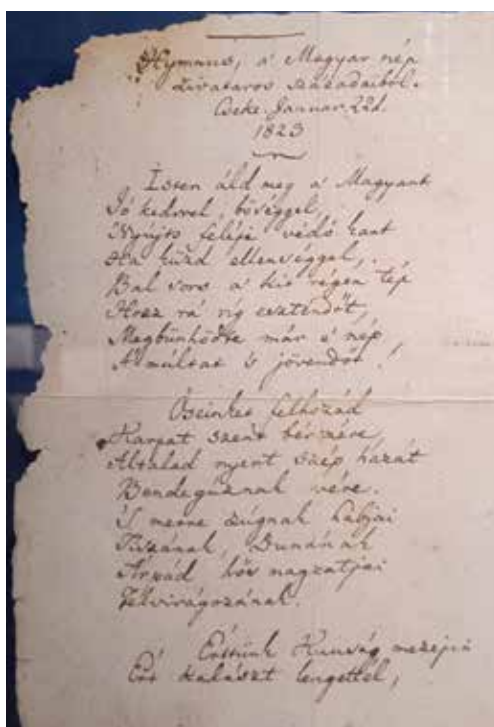 Hymnus, a' Magyar nép
zivataros századaiból.
Cseke. Januar. 22d.
1823
Isten áld meg a' Magyart
Jó kedvvel, bőséggel,
Nyújts feléje védő kart
Ha küzd ellenséggel,
Bal sors a' kit régen tép
Hozz rá víg esztendőt,
Megbünhödte már e' nép
A' múltat 's jövendőt!
Őseinket felhozád
Kárpát szent bérczére
Általad nyert szép hazát
Bendegúznak vére.
'S merre zúgnak habjai
Tiszának, Dunának
Árpád hős magzatjai
Felvirágozának.
Értünk Kunság mezejin
Ért kalászt lengettél,